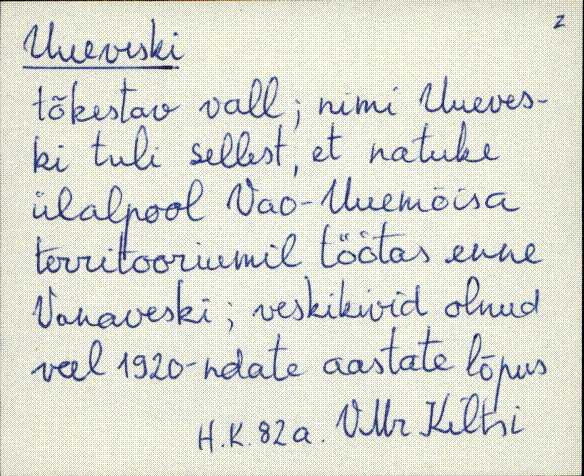 2
Uueveski
tõkestav vall; nimi Uueves-
ki tuli sellest, et natuke
ülalpool Vao-Uuemõisa
territooriumil töötas enne
Vanaveski; veskikivid olnud
veel 1920-ndate aastate lõpus
H.K. 82 a. VMr Kiltsi